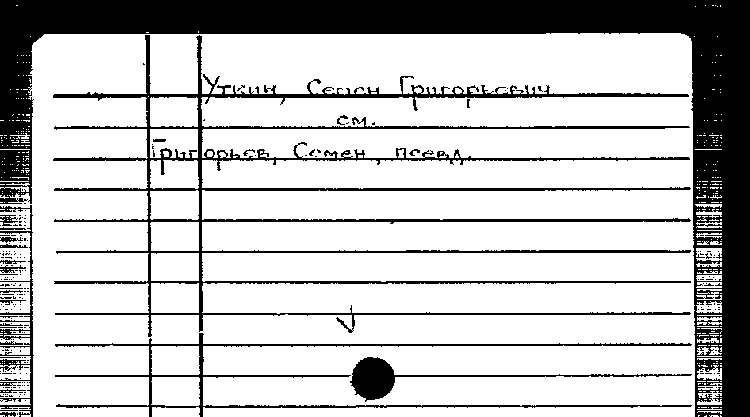 Уткин, Семен Григорьевич
см.
Григорьев, Семен, псевд.